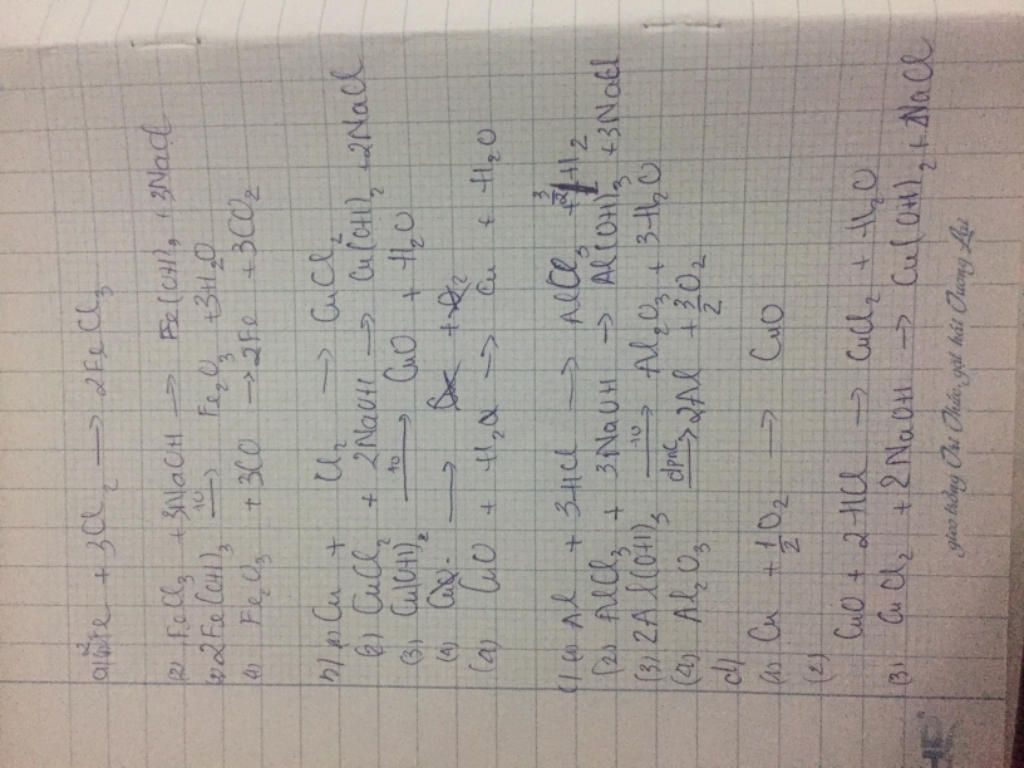 a) (1) 2Fe + 3Cl₂ → 2FeCl₃
(2) FeCl₃ + 3NaOH → Fe(OH)₃ + 3NaCl
(3) 2Fe(OH)₃ →(t°) Fe₂O₃ + 3H₂O
(4) Fe₂O₃ + 3CO → 2Fe + 3CO₂
b) (1) Cu + Cl₂ → CuCl₂
(2) CuCl₂ + 2NaOH → Cu(OH)₂ + 2NaCl
(3) Cu(OH)₂ →(t°) CuO + H₂O
(4) →
(4) CuO + H₂ → Cu + H₂O
c) (1) Al + 3HCl → AlCl₃ + 3/2 H₂
(2) AlCl₃ + 3NaOH → Al(OH)₃ + 3NaCl
(3) 2Al(OH)₃ →(t°) Al₂O₃ + 3H₂O
(4) Al₂O₃ →(đpnc) 2Al + 3/2 O₂
d)
(1) Cu + 1/2 O₂ → CuO
(2) CuO + 2HCl → CuCl₂ + H₂O
(3) CuCl₂ + 2NaOH → Cu(OH)₂ + 2NaCl